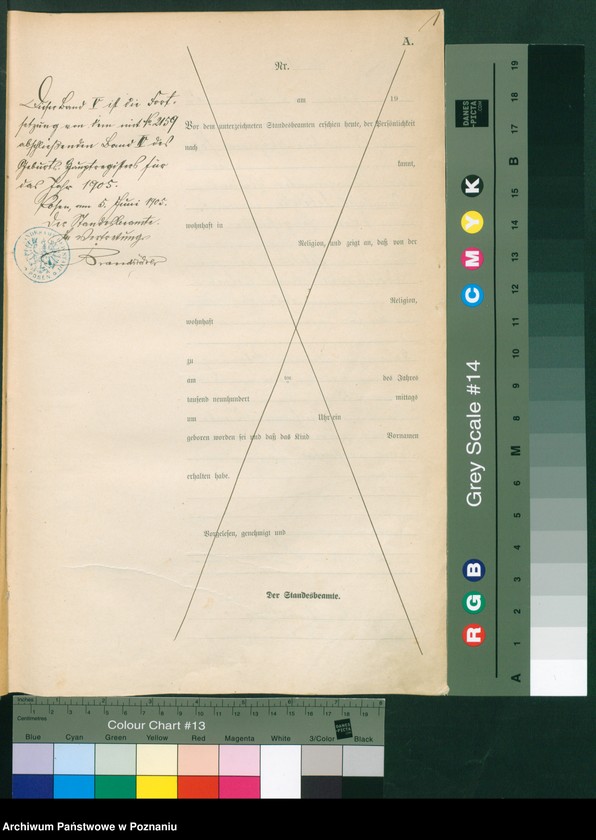 1
A.
Dieser Band V ist die Fort-
setzung von dem mit № 2159
abschließenden Band IV des
Geburts-Hauptregisters für
das Jahr 1905.
Posen, am 5. Juni 1905.
Der Standesbeamte.
In Vertretung
Nr.
am 19
Vor dem unterzeichneten Standesbeamten erschien heute, der Persönlichkeit
nach
kannt,
wohnhaft in
Religion, und zeigt an, daß von der
Religion,
wohnhaft
zu
am ten des Jahres
tausend neunhundert mittags
um Uhr ein
geboren worden sei und daß das Kind Vornamen
erhalten habe.
Vorgelesen, genehmigt und
Der Standesbeamte.
DANES
-PICTA
.COM
Grey Scale #14
R G B C M Y K
A 1 2 3 4 5 6 M 8 9 10 11 12 13 14 15 B 17 18 19
Inches 1 2 3 4 5 6 7 8
Centimetres 1 2 3 4 5 6 7 8 9 10 11 12 13 14 15 16 17 18 19
Colour Chart #13
DANES
-PICTA
.COM
Blue Cyan Green Yellow Red Magenta White 3/Color Black
Archiwum Państwowe w Poznaniu